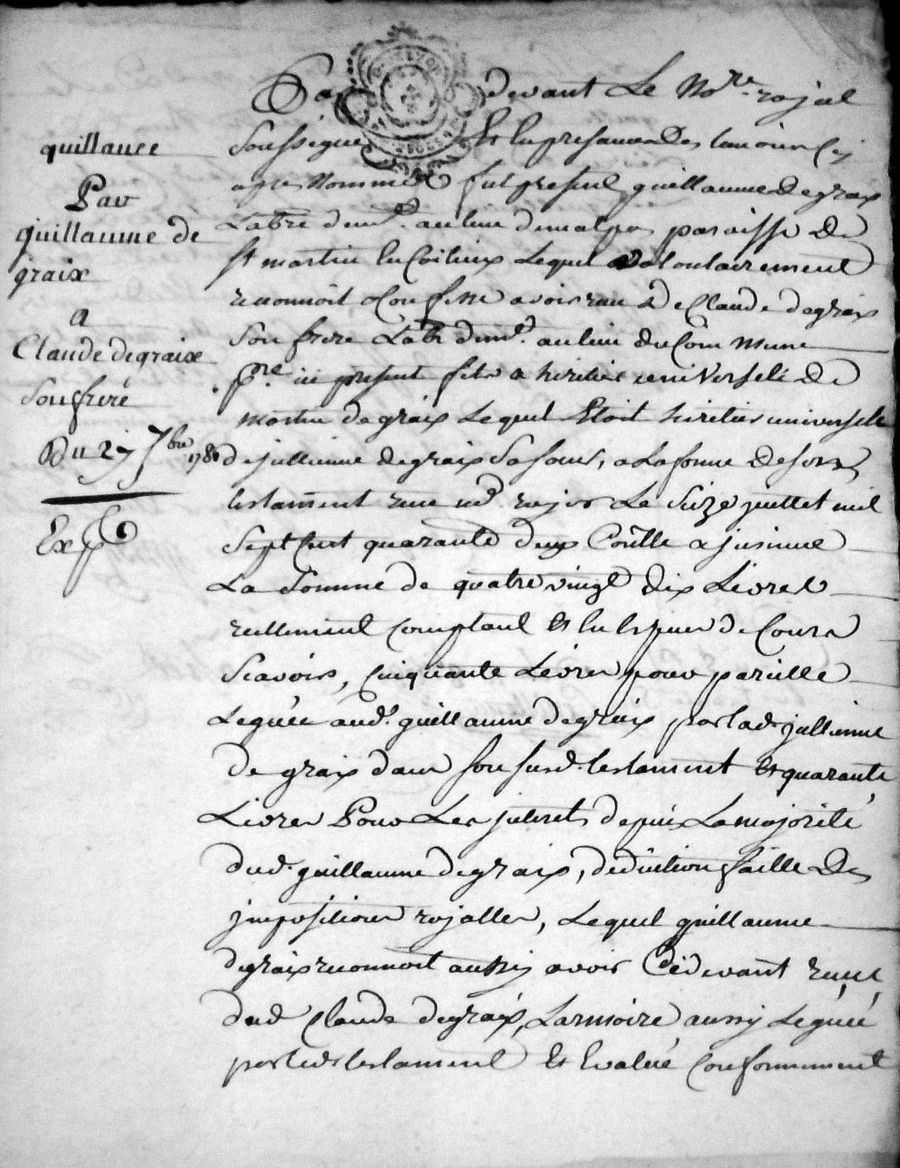 quittance
Par
guillaume de
graix
A
Claude degraix
Son freré
Du 27 7bre 1780
Exp
devant Le No.re royal
Soussigné Et En presance Des temoins Cy
apres Nommés fut presant guillaume degraix
Lab.r dem.t au lieu de paroisse De
st martin En Coilieux Lequel volontairement
reconnoit & Confesse avoir reçu De Claude degraix
Son frere Lab.r dem.t au lieu du Commune
p.re ici present fils & heritier universelle De
martin degraix Lequel Etoit heritier universelle
de jullienne degraix Sa soeur, a La forme de son
testament reçu no.re royal Le Seize juillet mil
Sept Cent quarante deux Con.tlle a
La Somme de quatre vingt dix Livres
reellement Comptant Et En Espece de Cours
Scavoir, Cinquante Livres pour pareille
Leguée aud. guillaume degraix par lad. jullienne
de graix dans son susd. testament Et quarante
Livres Pour Les interets depuis La majorité
dud. guillaume degraix, deduction faitte Des
jmpositions royalles, Lequel guillaume
degraix reconnoit aussy avoir Cÿ devant reçuë
dud. Claude degraix, Larmoire aussy Leguéé
par led. testament Et Evalué Conformement